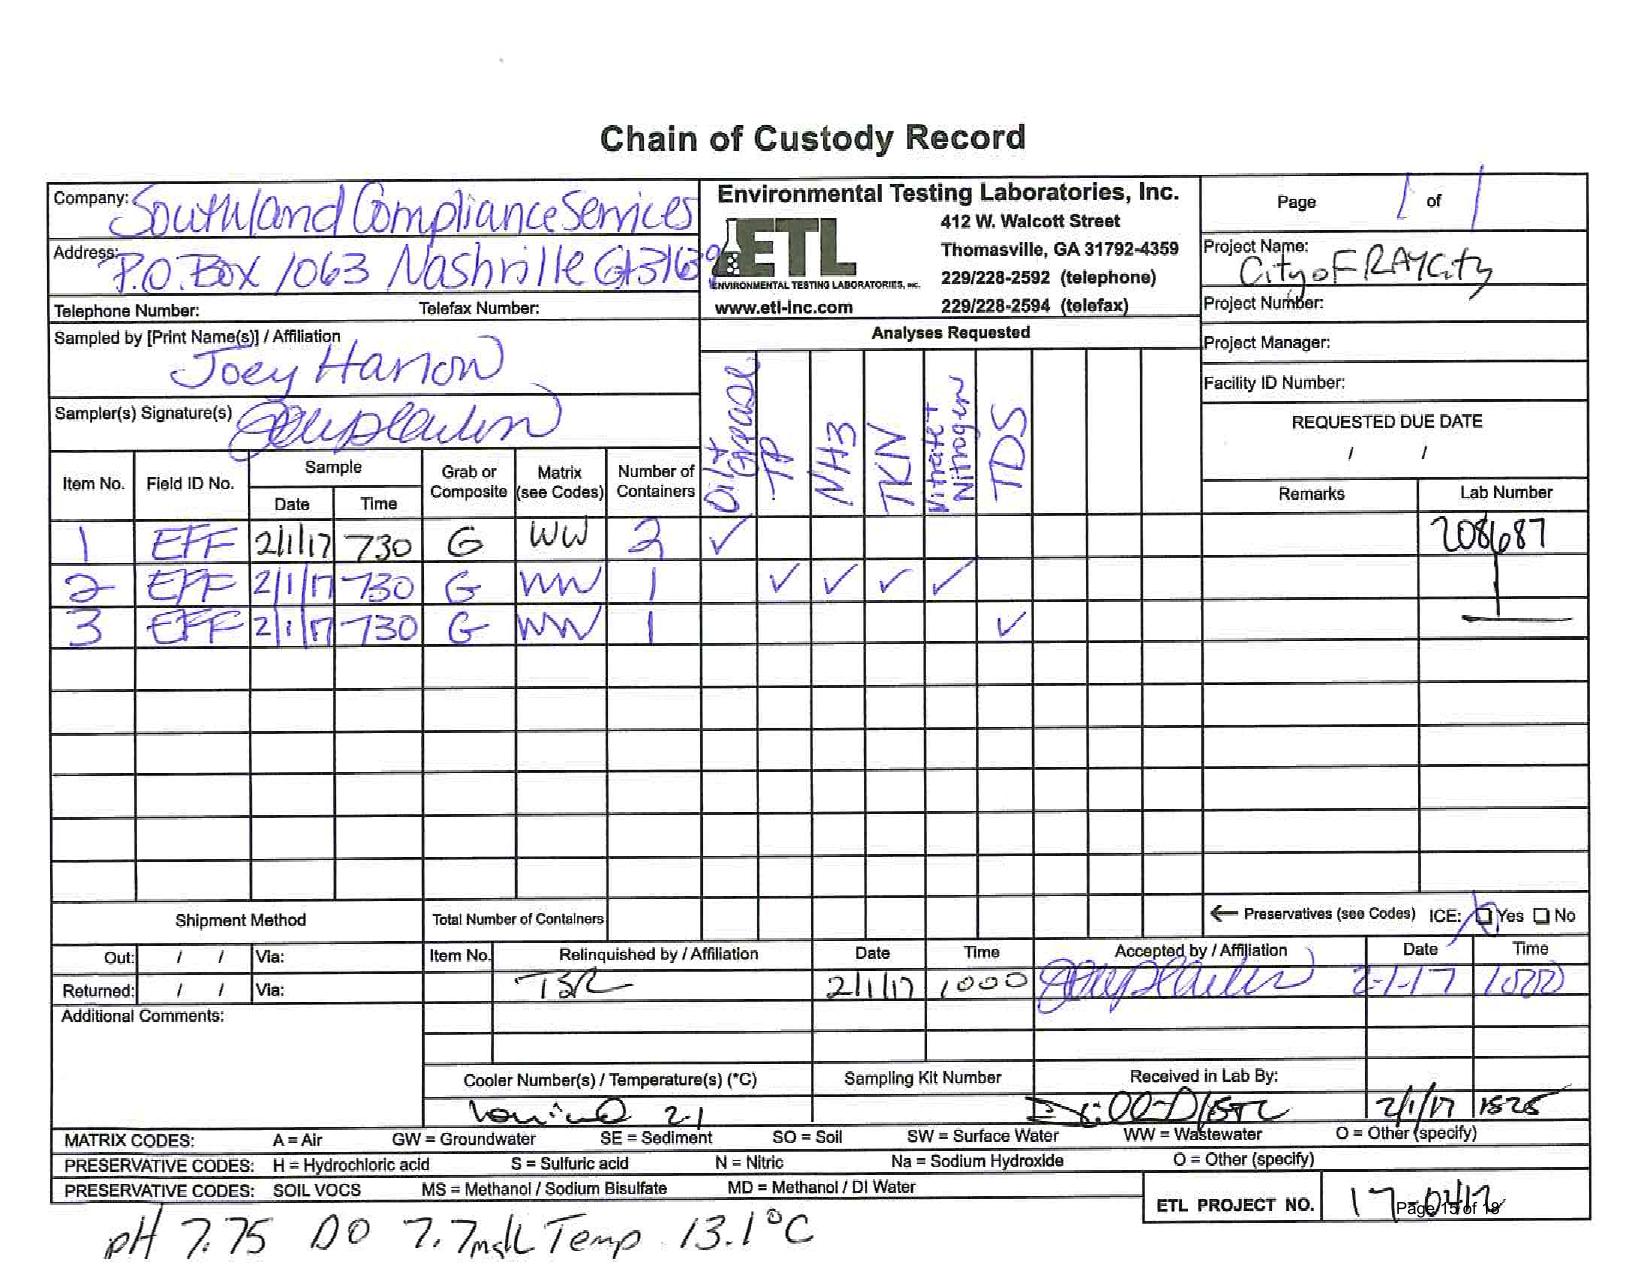 Chain of Custody Record
Company: Southland Compliance Services
Address: P.O. Box 1063 Nashville GA 31639
Telephone Number: Telefax Number:
Environmental Testing Laboratories, Inc.
412 W. Walcott Street
Thomasville, GA 31792-4359
229/228-2592 (telephone)
229/228-2594 (telefax)
ETL
ENVIRONMENTAL TESTING LABORATORIES, INC.
www.etl-inc.com
Page 1 of 1
Project Name: City oF RAY City
Project Number:
Project Manager:
Facility ID Number:
REQUESTED DUE DATE
/ /
Sampled by [Print Name(s)] / Affiliation
Joey
Sampler(s) Signature(s)
Analyses Requested
Oil + Grease
TP
NH3
TKN
Nitrate + Nitrogen
TDS
Item No. Field ID No. Sample Date Time Grab or Composite Matrix (see Codes) Number of Containers Remarks Lab Number
1 EFF 2/1/17 730 G WW 2 ✓ 208687
2 EFF 2/1/17 730 G WW 1 ✓ ✓ ✓ ✓
3 EFF 2/1/17 730 G WW 1 ✓
Shipment Method Total Number of Containers ← Preservatives (see Codes) ICE: Yes No
Out: / / Via: Item No. Relinquished by / Affiliation Date Time Accepted by / Affiliation Date Time
Returned: / / Via: TSR 2/1/17 1000 2-1-17 1000
Additional Comments:
Cooler Number(s) / Temperature(s) (°C) Sampling Kit Number Received in Lab By:
2.1 2/1/17 1525
MATRIX CODES: A = Air GW = Groundwater SE = Sediment SO = Soil SW = Surface Water WW = Wastewater O = Other (specify)
PRESERVATIVE CODES: H = Hydrochloric acid S = Sulfuric acid N = Nitric Na = Sodium Hydroxide O = Other (specify)
PRESERVATIVE CODES: SOIL VOCS MS = Methanol / Sodium Bisulfate MD = Methanol / DI Water
ETL PROJECT NO.
Page 15 of 18
pH 7.75 DO 7.7mg/L Temp 13.1°C